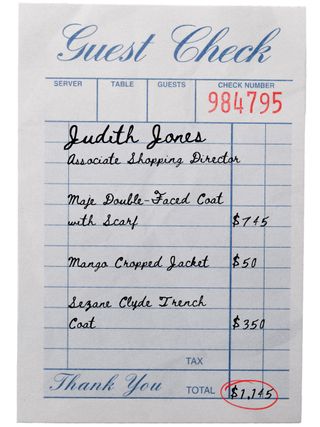 Guest Check
SERVER TABLE GUESTS CHECK NUMBER
984795
Judith Jones
Associate Shopping Director
Maje Double-Faced Coat
with Scarf $745
Mango Cropped Jacket $50
Sezane Clyde Trench
Coat $350
TAX
Thank You TOTAL $1,145